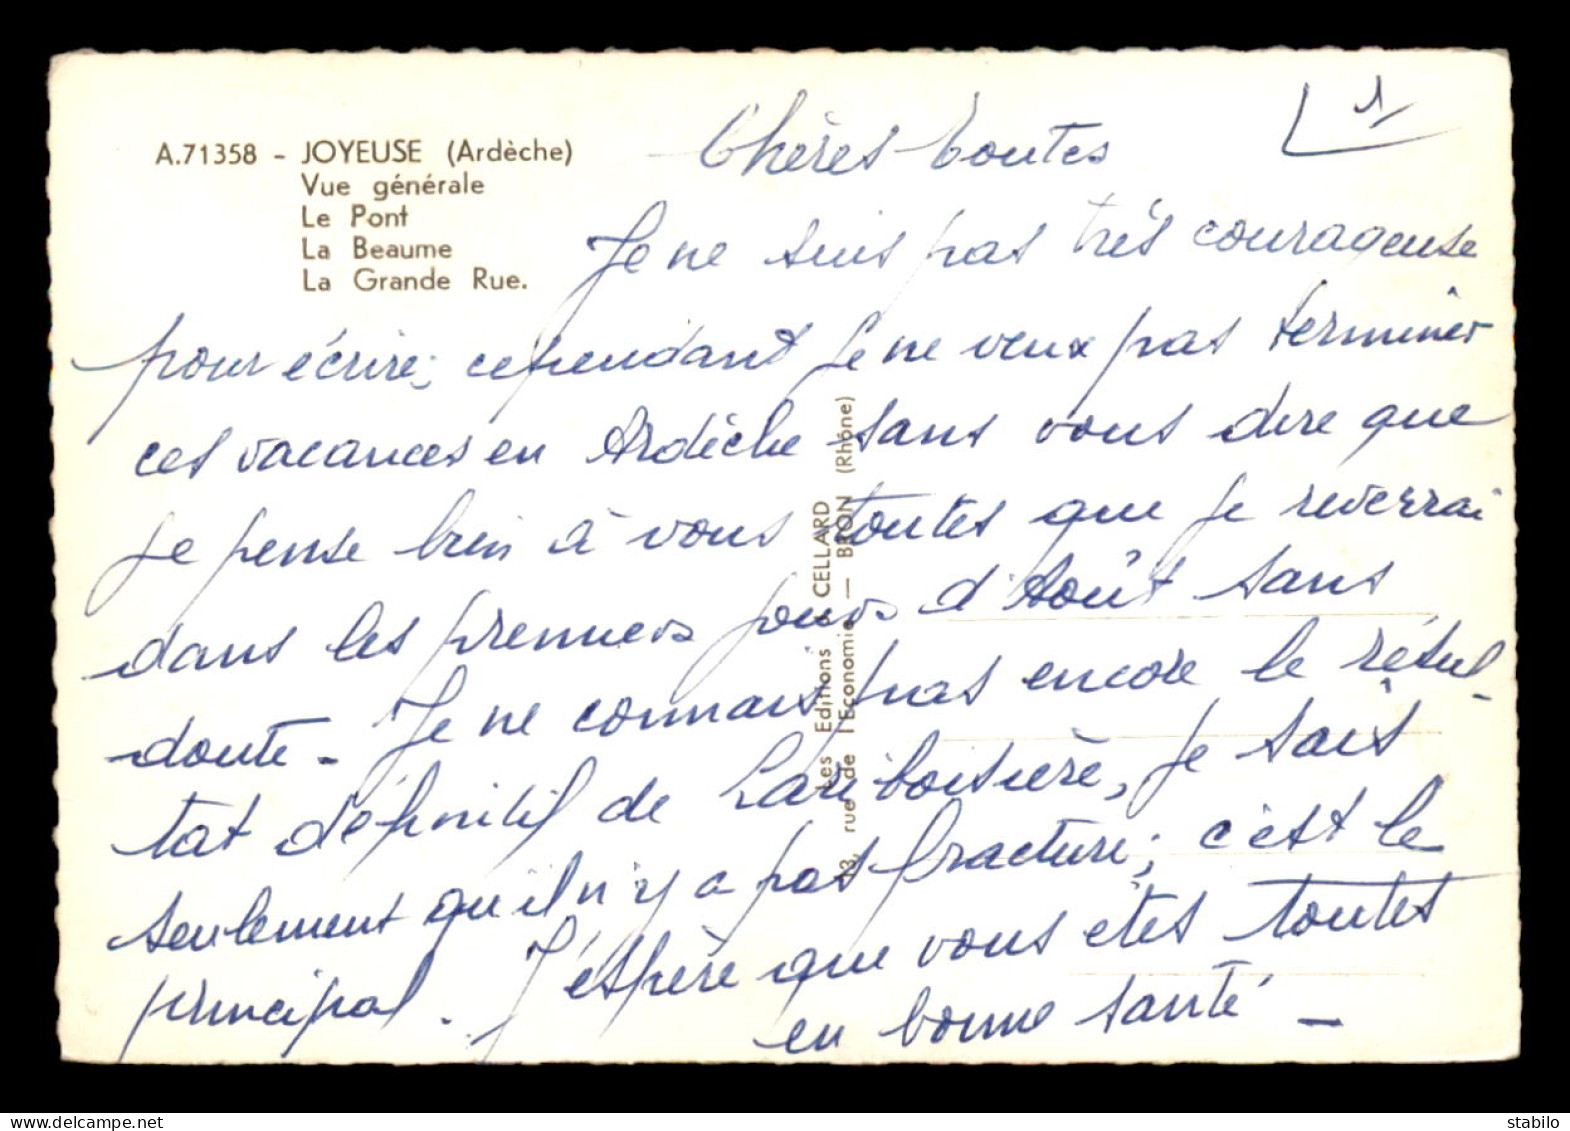 A.71358 - JOYEUSE (Ardèche)
Vue générale
Le Pont
La Beaume
La Grande Rue.
1
Chères toutes
Je ne suis pas très courageuse
pour écrire; cependant je ne veux pas terminer
ces vacances en Ardèche sans vous dire que
je pense bien à vous toutes que je reverrai
dans les premiers jours d'Août sans
doute - Je ne connais pas encore le résul-
tat définitif de Lariboisière, je sais
seulement qu'il n'y a pas fracture; c'est le
principal. J'espère que vous êtes toutes
en bonne santé -
Les Editions CELLARD
rue de l'Economie — BRON (Rhône)
delcampe.net
stabilo